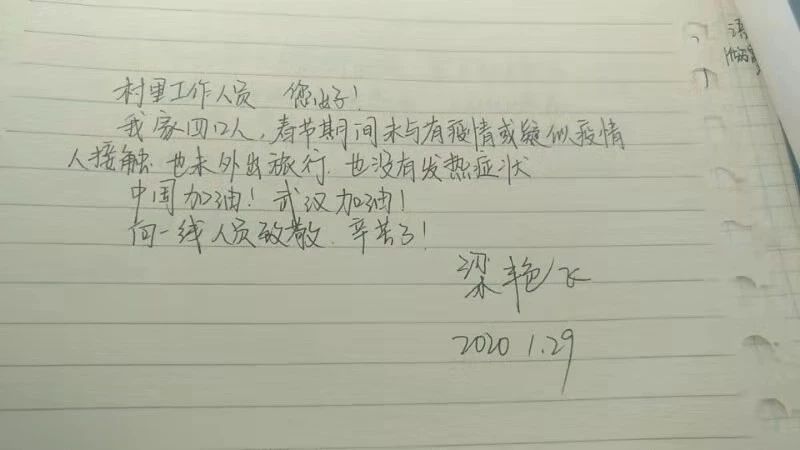 村里工作人员 您好!
我家四口人,春节期间未与有疫情或疑似疫情
人接触.也未外出旅行.也没有发热症状
中国加油!武汉加油!
向一线人员致敬.辛苦了!
梁艳飞
2020 1.29